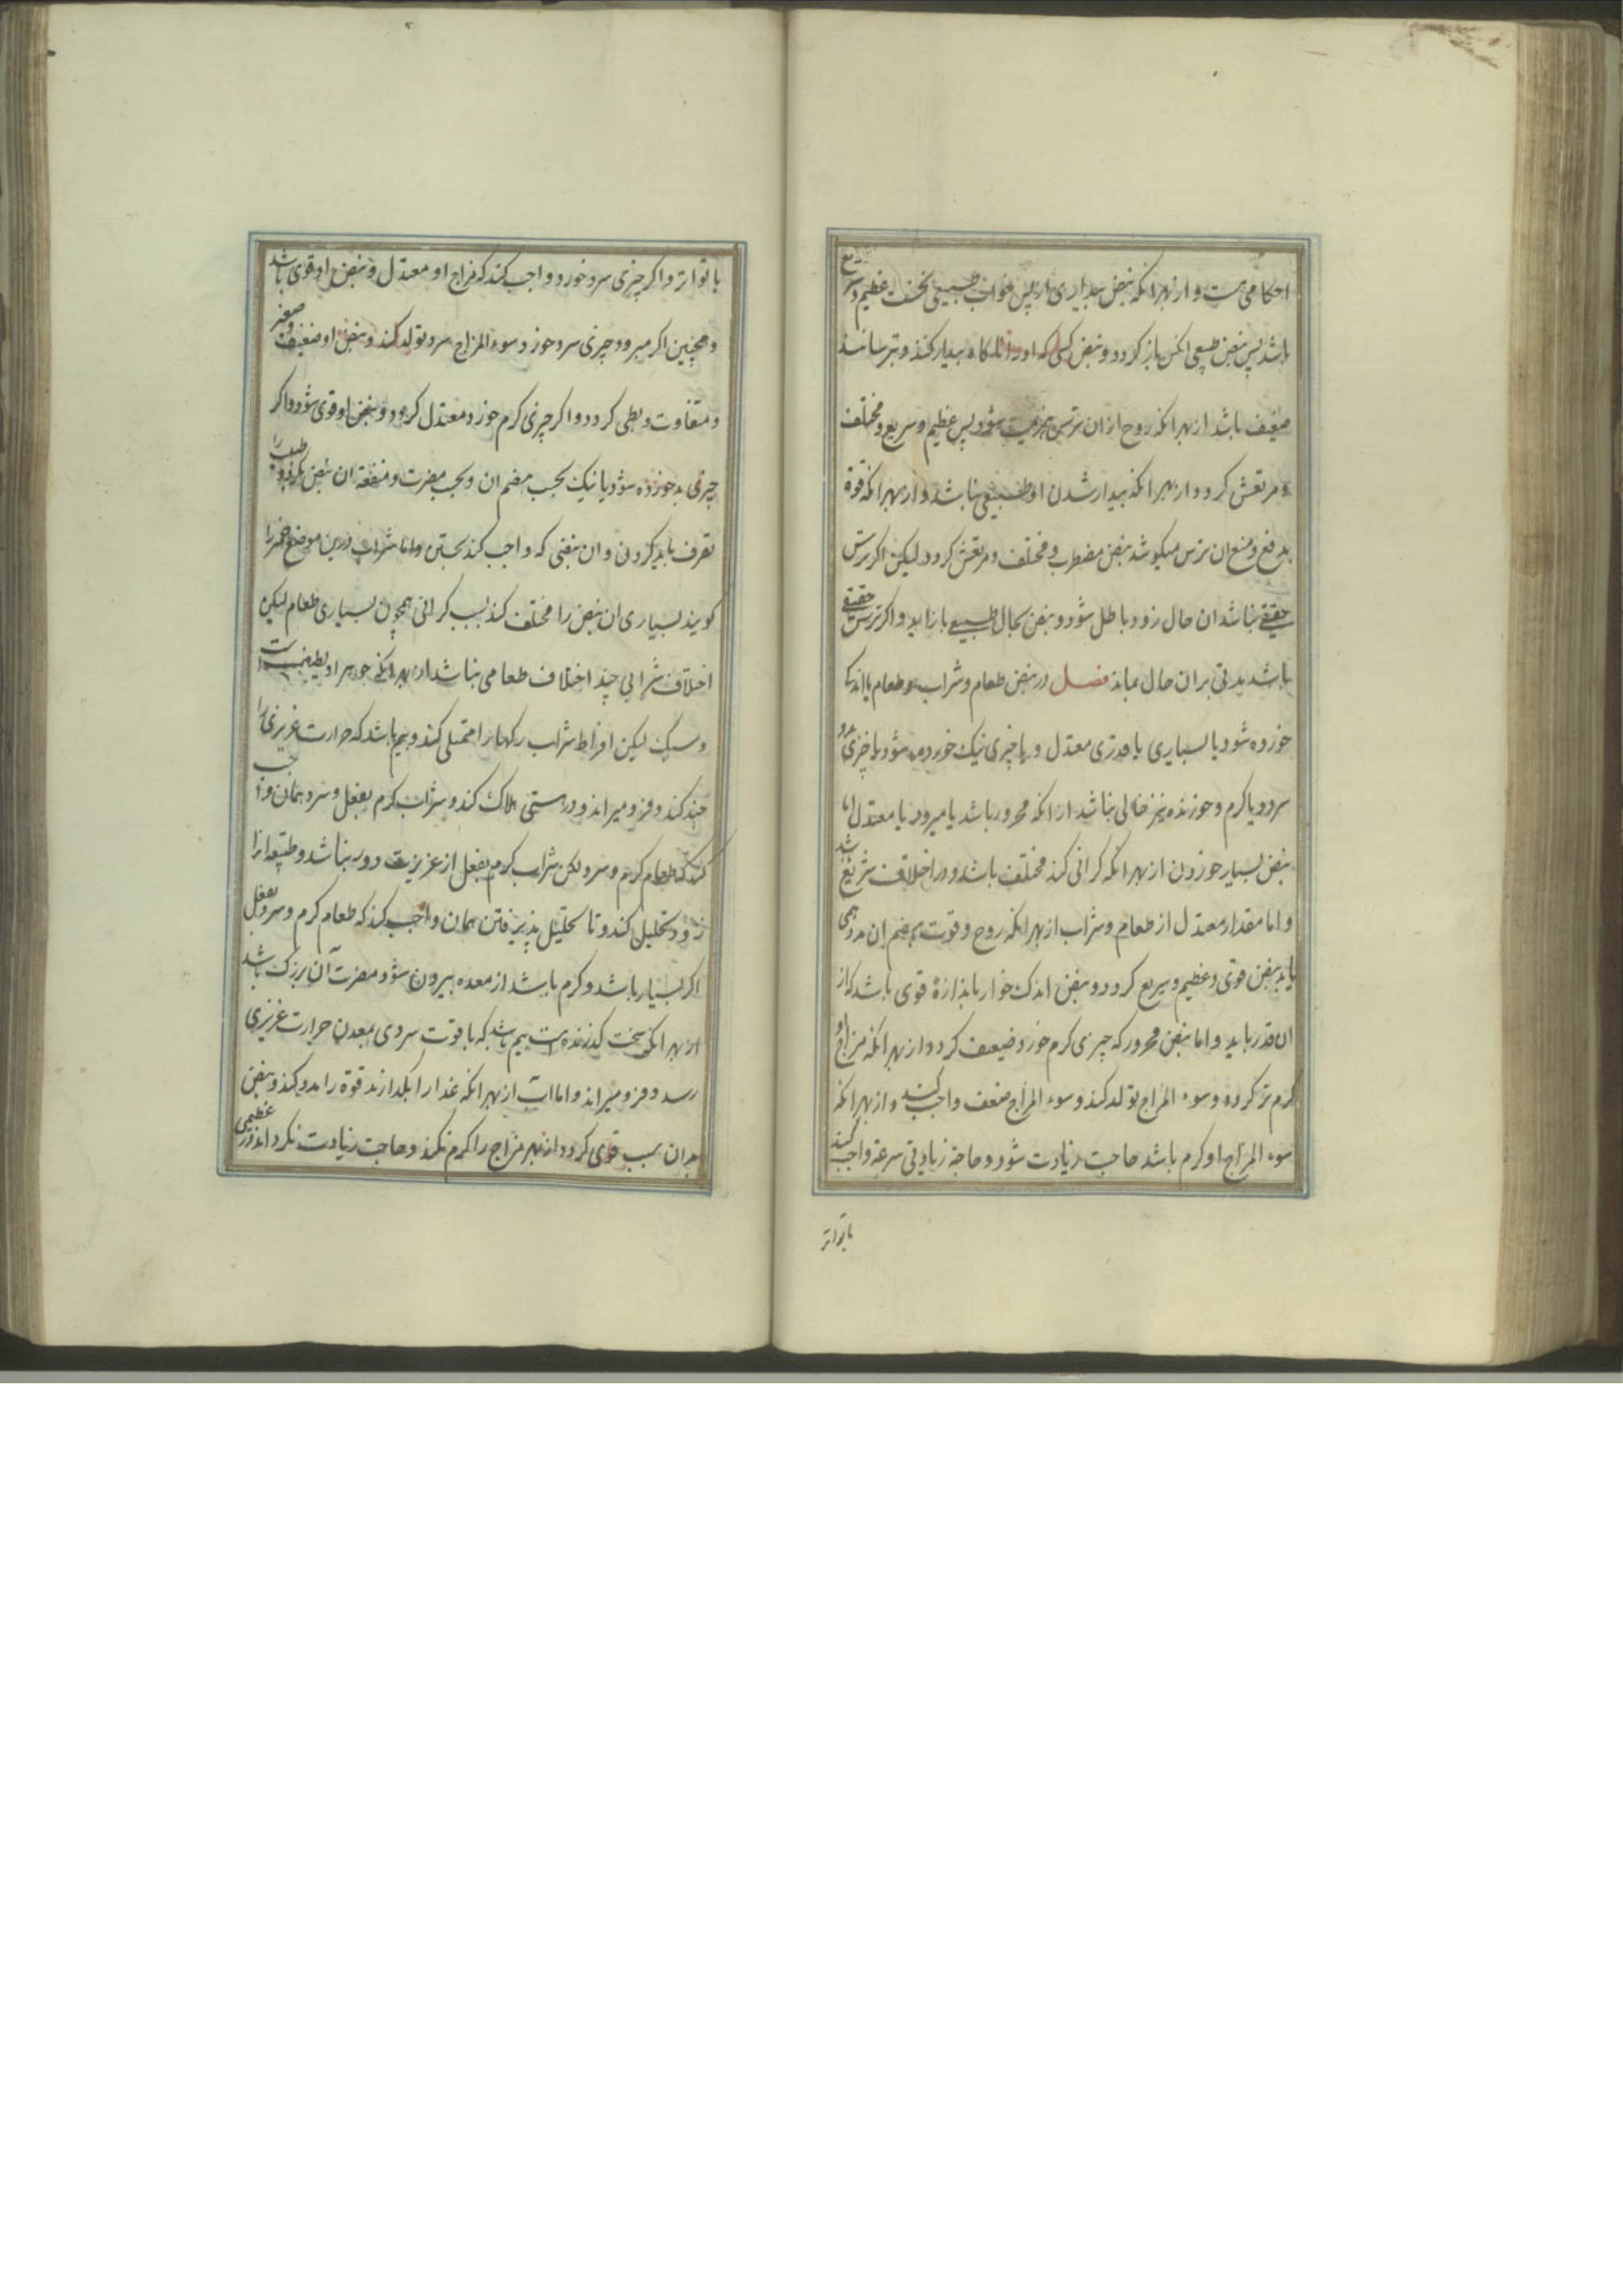 احکامی است و از بهر انکه نبض بیداری از پس خواب طبیعی نخست عظیم و سریع
باشد پس نبض طبیعی اکن باز کردد و نبض کسی که او را ناکاه بیدار کنند و بترسانند
ضعیف باشد از بهر انکه روح از ان ترس بهزیمت شود پس عظیم و سریع و مختلف
و مرتعش کردد از بهر انکه بیدار شدن او طبیعی نباشد و از بهر انکه قوة
بدفع و منع ان ترس میکوشد نبض مضطرب و مختلف و مرتعش کردد لیکن اکر ترس
حقیقی نباشد ان حال زود باطل شود و نبض بحال طبیعی باز اید و اکر ترس حقیقی
باشد مدتی بران حال بماند فصل در نبض طعام و شراب و طعام یا اندک
خورده شود یا بسیاری یا قدری معتدل و یا چیزی نیک خورده شود یا چیزی بد و
سرد و یا کرم و خورنده نیز خالی نباشد از انکه محرور باشد یا مبرود یا معتدل اما
نبض بسیار خوردن از بهر انکه کرانی کند مختلف باشد و در اختلاف سریع باشد
و اما مقدار معتدل از طعام و شراب از بهر انکه روح و قوت بهضم ان مددی
یابد نبض قوی و عظیم و سریع کردد و نبض اندک خوار باندازهٔ قوی باشد که از
ان قدر یابد و اما نبض محرور که چیزی کرم خورد ضعیف کردد از بهر انکه مزاج او
کرم تر کردد و سوء المزاج تولد کند و سوء المزاج ضعف واجب کند و از بهر انکه
سوء المزاج او کرم باشد حاجت زیادت شود و حاجة زیادتی سرعة واجب کند
با تواتر
با تواتر و اکر چیزی سرد خورد واجب کند که مزاج او معتدل و نبض او قوی باشد
و همچنین اکر مبرود چیزی سرد خورد سوء المزاج سرد تولد کند و نبض او ضعیف و صغیر
و متفاوت و بطی کردد و اکر چیزی کرم خورد معتدل کردد و نبض او قوی شود و اکر
چیزی بد خورده شود یا نیک بحسب هضم ان و بحسب مضرت و منفعة ان نبض بکردد و طبیب را
تعرف باید کردن و ان نبضی که واجب کند بجستن و اما شراب درین موضع خمر را
کویند بسیاری ان نبض را مختلف کند بسبب کرانی همچون بسیاری طعام لیکن
اختلاف شرابی چند اختلاف طعامی نباشد از بهر انکه جوهر او لطیف است
و سبک لیکن افراط شراب رکها را ممتلی کند و بیم باشد که حرارت غریزی را
خبه کند و فرو میراند و در مستی هلاک کند و شراب کرم بفعل و سرد همان واجب
کند که طعام کرم و سرد لکن شراب کرم بفعل از غریزیت دور نباشد و طبیعه انرا
زود تحلیل کند و تا تحلیل پذیرفتن همان واجب کند که طعام کرم و سرد بفعل
اکر بسیار باشد و کرم باشد از معده بیرون شود مضرت آن بزرک باشد
از بهر انکه سخت کدرنده است بیم باشد که با قوت سردی بمعدن حرارت غریزی
رسد و فرو میراند و اما اب از بهر انکه غذا را بکدازند قوة را مدد کند و نبض
بدان سبب قوی کردد از بهر مزاج را کرم نکند و حاجت زیادت نکرداند در عظیمی